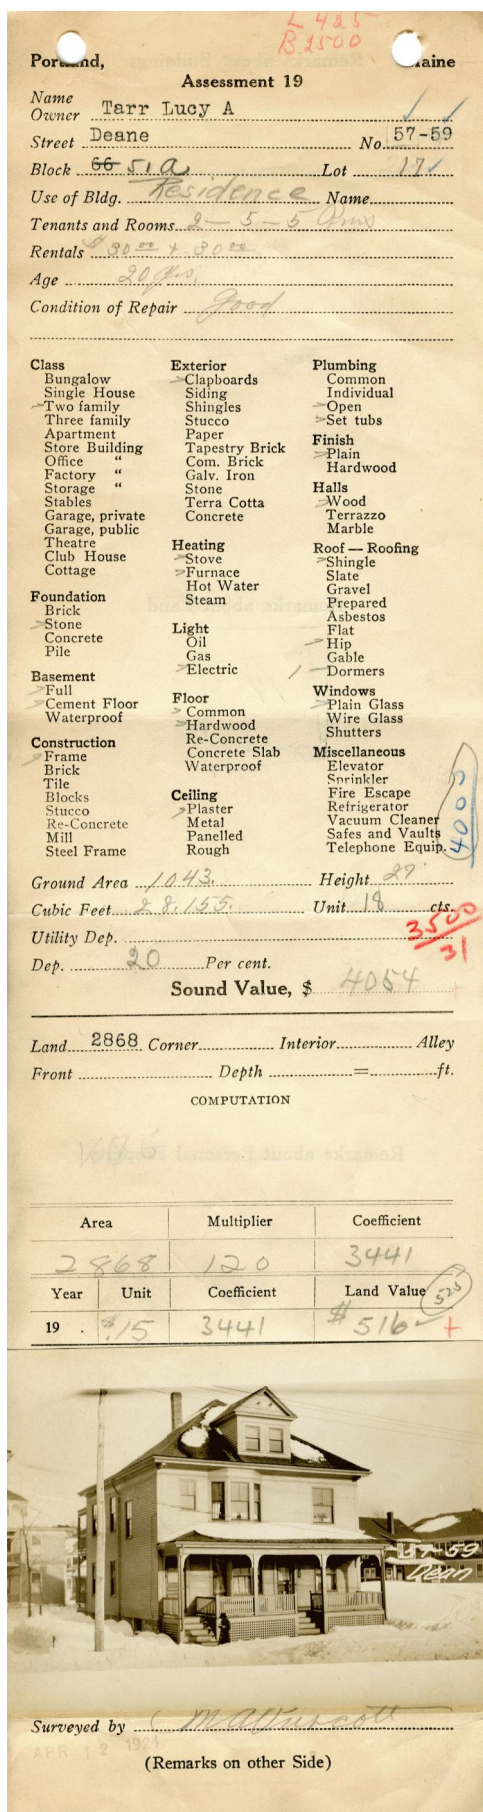 L 425
B 2500
Portland, Maine
Assessment 19
Name
Owner Tarr Lucy A
Street Deane No. 57-59
Block 66 51A Lot 17
Use of Bldg. Residence Name
Tenants and Rooms 2 - 5 - 5 Rms
Rentals $ 30 00 + 30 00
Age 20 yrs.
Condition of Repair Good
Class
Bungalow
Single House
Two family
Three family
Apartment
Store Building
Office "
Factory "
Storage "
Stables
Garage, private
Garage, public
Theatre
Club House
Cottage
Foundation
Brick
Stone
Concrete
Pile
Basement
Full
Cement Floor
Waterproof
Construction
Frame
Brick
Tile
Blocks
Stucco
Re-Concrete
Mill
Steel Frame
Exterior
Clapboards
Siding
Shingles
Stucco
Paper
Tapestry Brick
Com. Brick
Galv. Iron
Stone
Terra Cotta
Concrete
Heating
Stove
Furnace
Hot Water
Steam
Light
Oil
Gas
Electric
Floor
Common
Hardwood
Re-Concrete
Concrete Slab
Waterproof
Ceiling
Plaster
Metal
Panelled
Rough
Plumbing
Common
Individual
Open
Set tubs
Finish
Plain
Hardwood
Halls
Wood
Terrazzo
Marble
Roof — Roofing
Shingle
Slate
Gravel
Prepared
Asbestos
Flat
Hip
Gable
1 Dormers
Windows
Plain Glass
Wire Glass
Shutters
Miscellaneous
Elevator
Sprinkler
Fire Escape
Refrigerator
Vacuum Cleaner
Safes and Vaults
Telephone Equip.
4005
Ground Area 1043. Height 27'
Cubic Feet 28,155. Unit 18 cts.
3500
31
Utility Dep.
Dep. 20 Per cent.
Sound Value, $ 4054 +
Land 2868 Corner Interior Alley
Front Depth = ft.
COMPUTATION
Area Multiplier Coefficient
2868 120 3441
Year Unit Coefficient Land Value 525
19 $.15 3441 $ 516 +
57-59
Dean
Surveyed by
APR 12 1924
(Remarks on other Side)